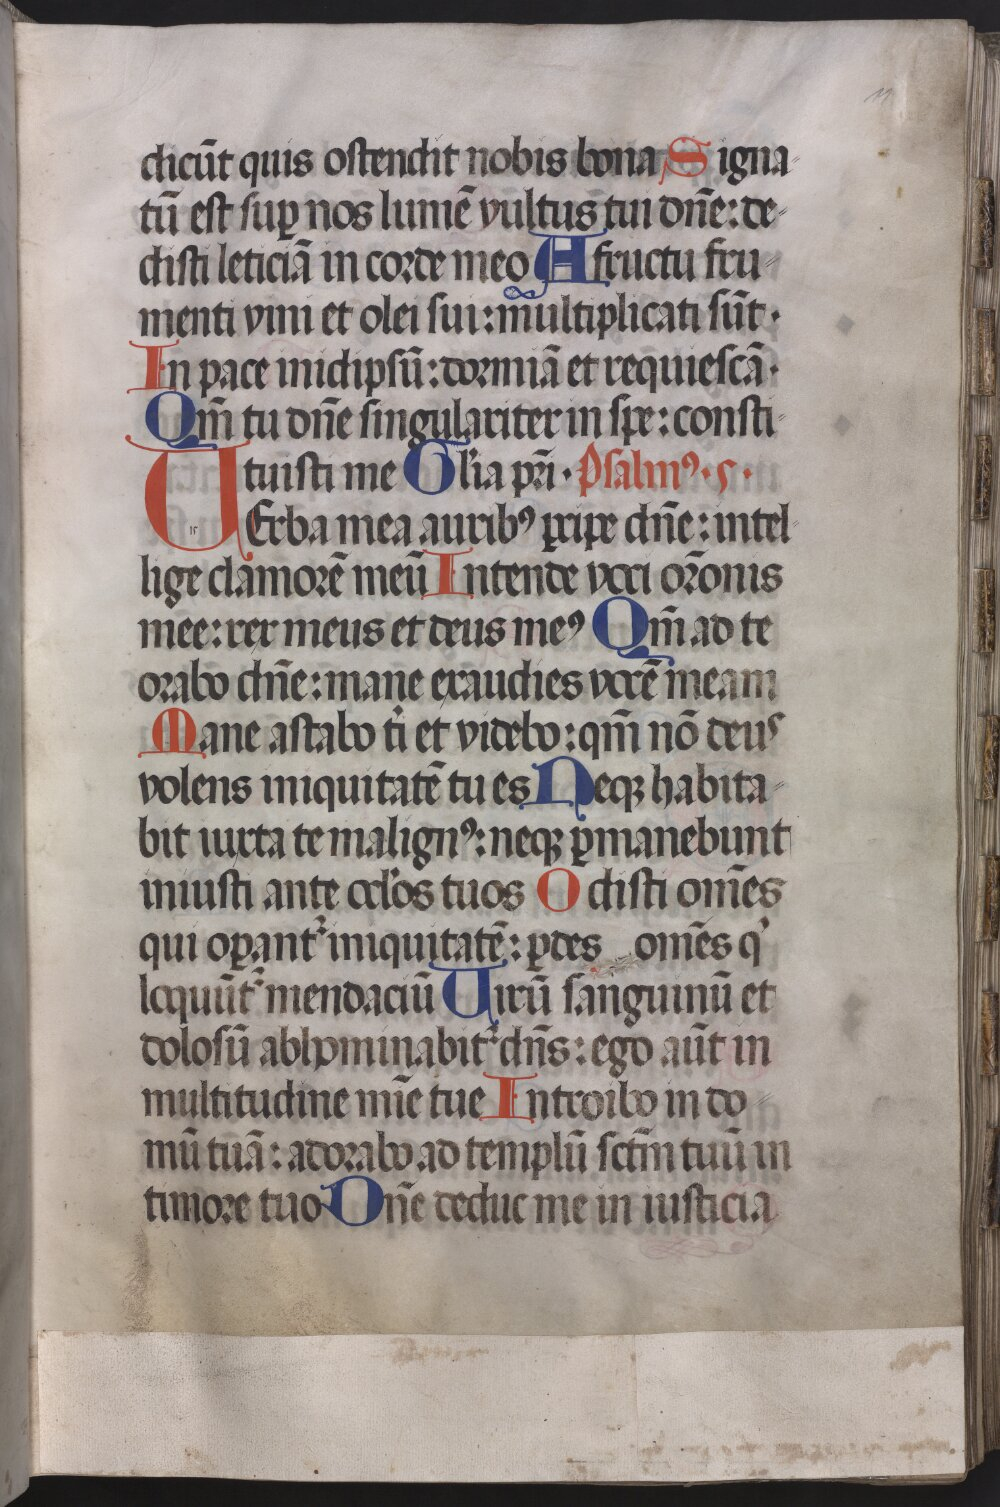 dicūt quis ostendit nobis bona Signa-
tū est suꝑ nos lumē vultus tui dn̄e: de-
disti leticiā in corde meo A fructu fru-
menti vini et olei sui: multiplicati sūt.
In pace in idipsū: dormiā et req̄uiescā.
Qm̄ tu dn̄e singulariter in spe: consti-
tuisti me Gl'ia pr̄i. Psalmꝰ. 5.
UErba mea auribꝰ ꝑcipe dn̄e: intel-
lige clamorē meū Intende voci or̄onis
mee: rex meus et deus meꝰ Qm̄ ad te
orabo dn̄e: mane exaudies vocē meam
Mane astabo ti et videbo: qm̄ nō deus
volens iniquitatē tu es Neqꝫ habita-
bit iuxta te malignꝰ: neqꝫ ꝑmanebunt
iniusti ante ocl'os tuos Odisti om̄es
qui oꝑant᷑ iniquitatē: ꝑdes om̄es q'
loquūt᷑ mendaciū Uirū sanguinū et
dolosū abhominabit᷑ dn̄s: ego aūt in
multitudine mīe tue Introibo in do
mū tuā: adorabo ad templū sc̄tm̄ tuū in
timore tuo Dn̄e deduc me in iusticia